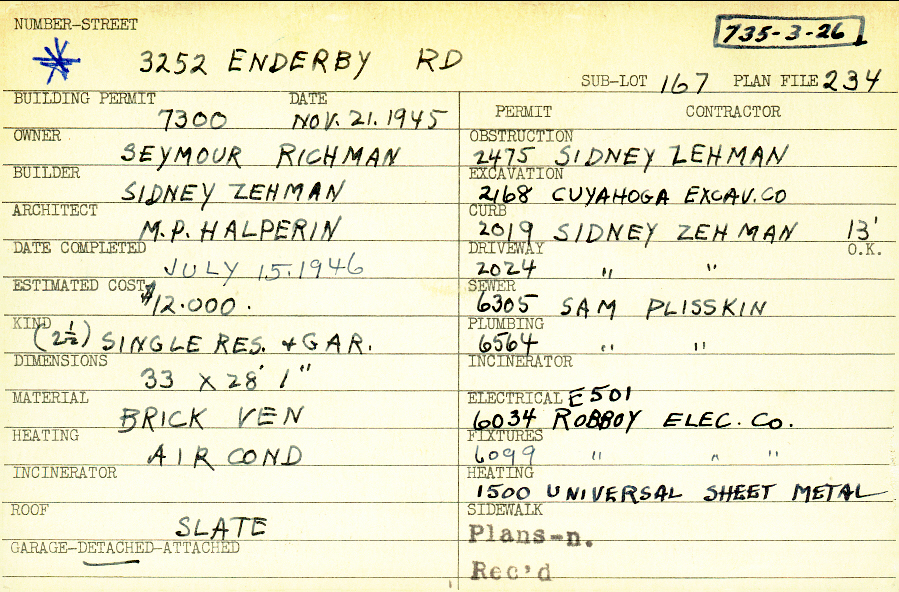 NUMBER-STREET
735-3-26
3252 ENDERBY RD
SUB-LOT 167 PLAN FILE 234
BUILDING PERMIT DATE
7300 NOV. 21. 1945
OWNER
SEYMOUR RICHMAN
BUILDER
SIDNEY ZEHMAN
ARCHITECT
M.P. HALPERIN
DATE COMPLETED
JULY 15. 1946
ESTIMATED COST
$12.000.
KIND
(2½) SINGLE RES. + GAR.
DIMENSIONS
33 X 28' 1"
MATERIAL
BRICK VEN
HEATING
AIR COND
INCINERATOR
ROOF
SLATE
GARAGE-DETACHED-ATTACHED
PERMIT CONTRACTOR
OBSTRUCTION
2475 SIDNEY ZEHMAN
EXCAVATION
2168 CUYAHOGA EXCAV. CO
CURB
2019 SIDNEY ZEHMAN 13'
O.K.
DRIVEWAY
2024 " "
SEWER
6305 SAM PLISSKIN
PLUMBING
6564 " "
INCINERATOR
ELECTRICAL E501
6034 ROBBOY ELEC. CO.
FIXTURES
6099 " " "
HEATING
1500 UNIVERSAL SHEET METAL
SIDEWALK
Plans-n.
Rec'd